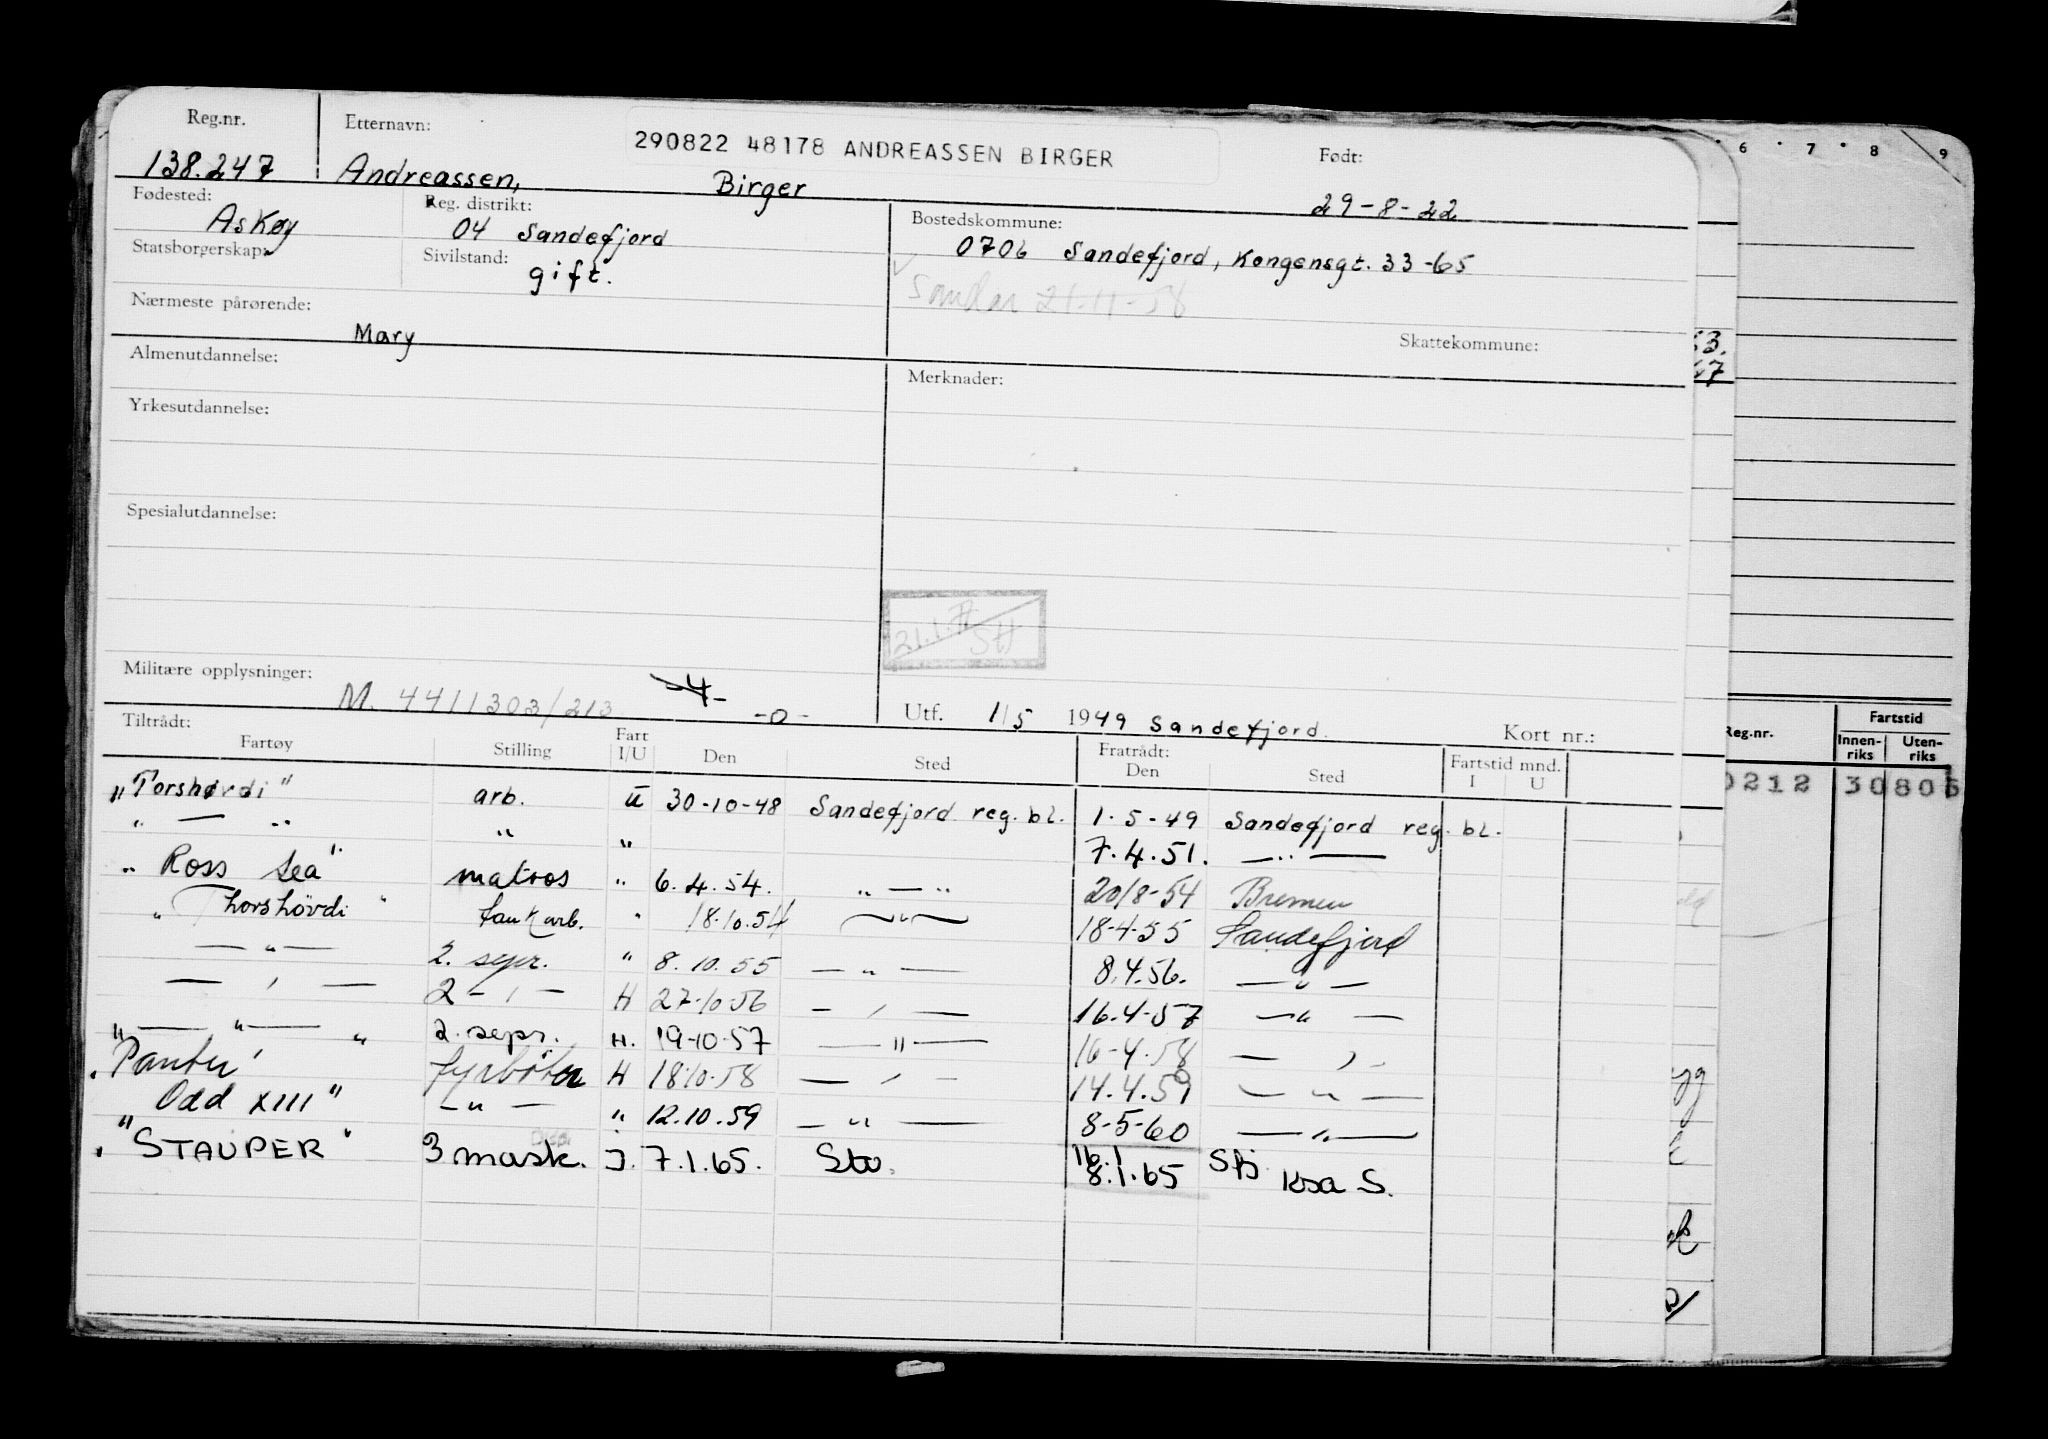 Reg.nr. Etternavn: 290822 48178 ANDREASSEN BIRGER Født:
138.247 Andreassen, Birger 29-8-22
Fødested: Askøy Reg. distrikt: 04 Sandefjord Bostedskommune: 0706 Sandefjord, Kongensgt. 33-65
Statsborgerskap: Sivilstand: gift. Sandar 21-11-58
Nærmeste pårørende: Mary Skattekommune:
Almenutdannelse: Merknader:
Yrkesutdannelse:
Spesialutdannelse:
21.1. SH
Militære opplysninger: M. 4411303/213 -4- -0- Utf. 1/5 1949 Sandefjord. Kort nr.:
Tiltrådt: Fartøy Stilling Fart I/U Den Sted Fratrådt: Den Sted Fartstid mnd. I U
"Torshøvdi" arb. U 30-10-48 Sandefjord reg. bl. 1.5-49 Sandefjord reg. bl.
" — " " " 7.4.51. — " —
"Ross Sea" matros " 6.4.54. " — " 20/8-54 Bremen
"Thorshövdi" tankarb. " 18.10.54 — " — 18-4-55 Sandefjord
— " — 2. sepr. " 8.10.55 — " — 8.4.56. — " —
— " — 2 — " — H 27-10-56 — " — 16.4-57 — " —
" — " — " 2. sepr. H. 19-10-57 — " — 16-4-58 — " —
"Panter" fyrbøter H 18.10-58 — " — 14.4.59 — " —
"Odd XIII" — " — " 12.10.59 — " — 8-5-60 — " —
"STAUPER" 3 mask. I. 7.1.65. Sto. 16.1 8.1.65 Sfj. Ksa S.
6 7 8 9
53.
67
Reg.nr. Fartstid
Innenriks Utenriks
0212 30805